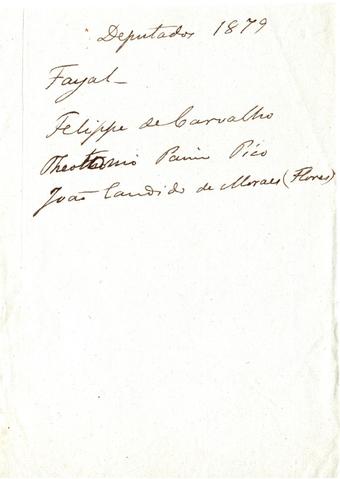 Deputados 1879
Fayal_
Felippe de Carvalho
Theotonio Paim Pico
João Candido de Moraes (Flores)